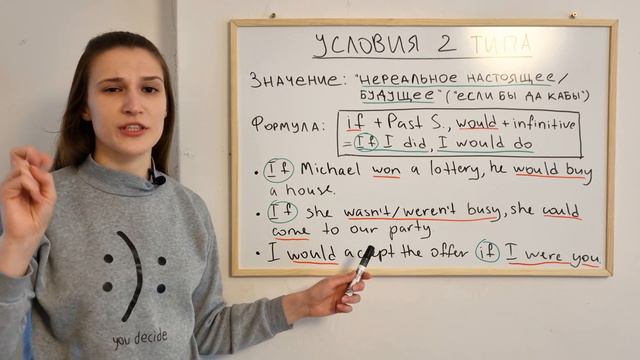 УСЛОВИЯ 2 ТИПА
ЗНАЧЕНИЕ: "НЕРЕАЛЬНОЕ НАСТОЯЩЕЕ/
БУДУЩЕЕ" ("ЕСЛИ БЫ ДА КАБЫ")
ФОРМУЛА: if + Past S., would + infinitive
= If I did, I would do
• If Michael won a lottery, he would buy
a house.
• If she wasn't/weren't busy, she could
come to our party
• I would accept the offer if I were you.
:) :
you decide